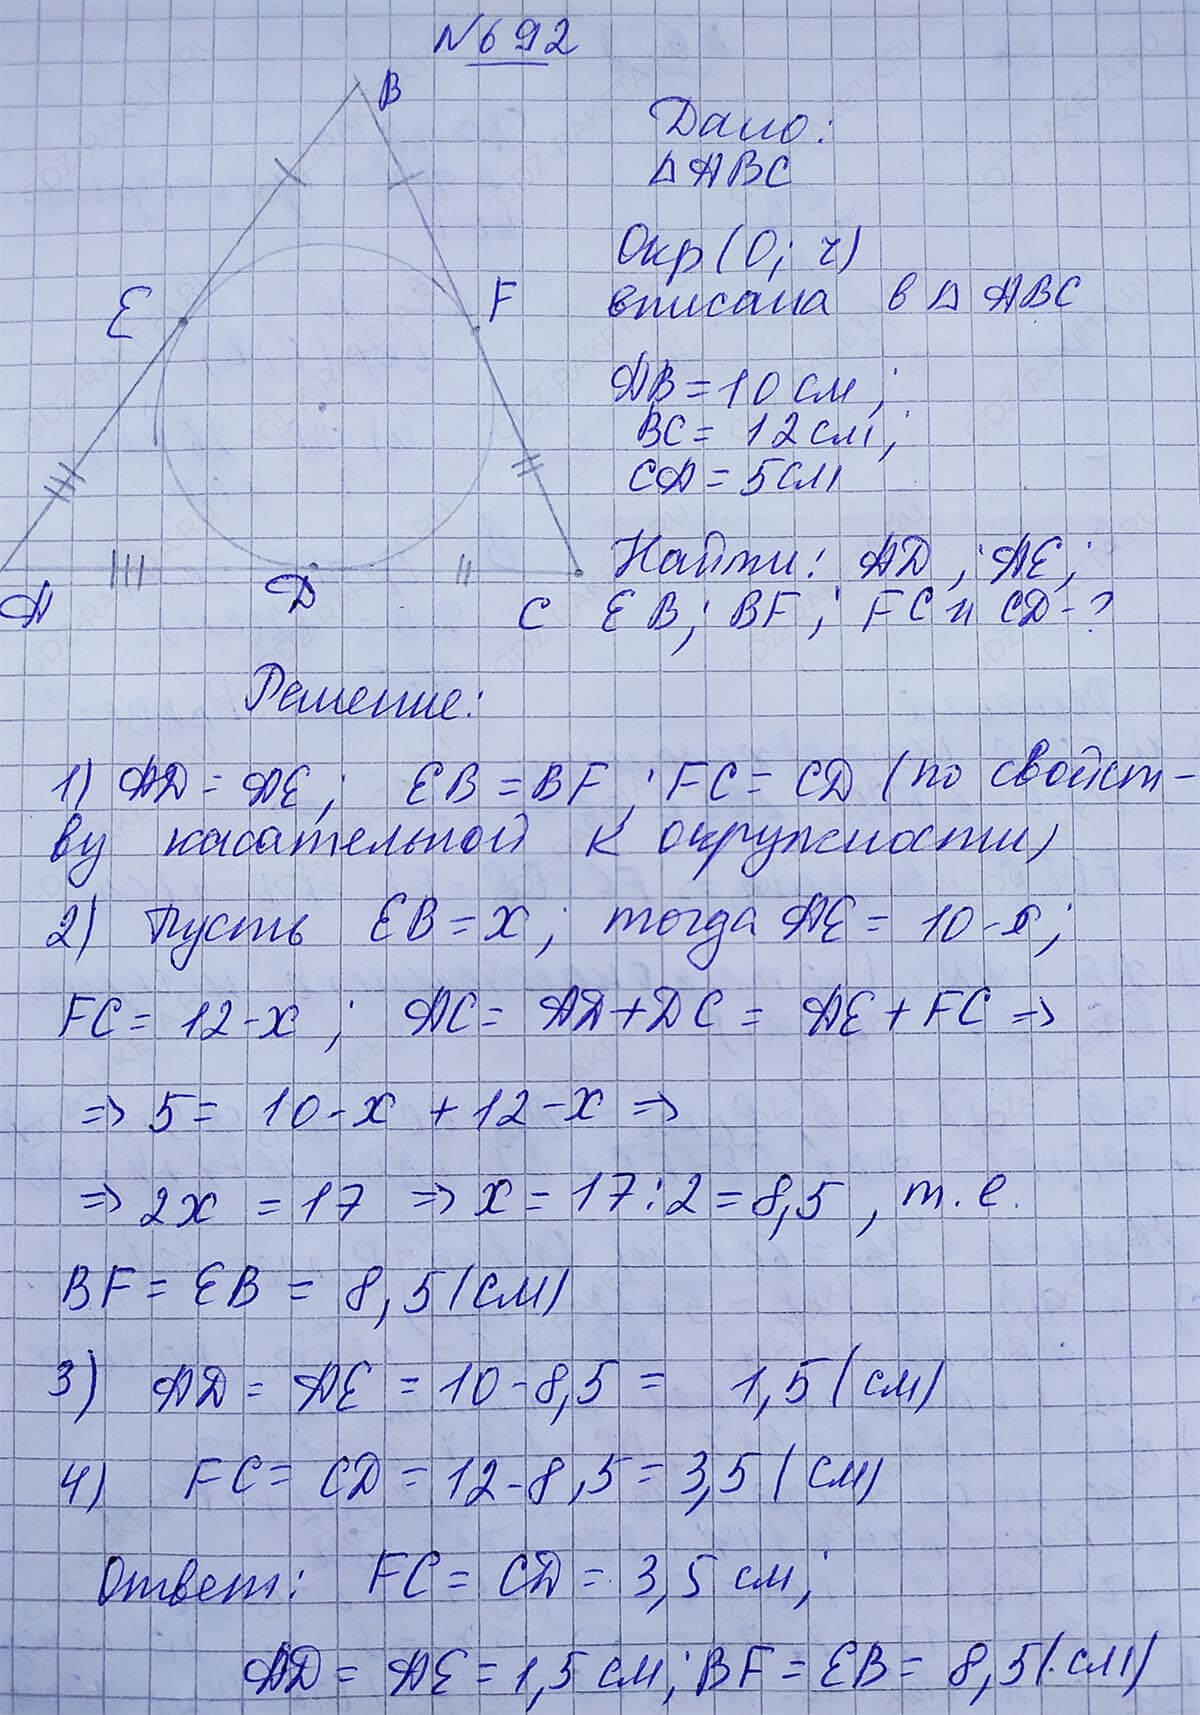 №692
B
Дано:
△ABC
Окр(O; r)
E
F
вписана в △ ABC
AB = 10 см;
BC = 12 см;
CA = 5 см
Найти: AD; AE;
A
D
C
EB; BF; FC и CD-?
Решение:
1) AD = AE; EB = BF; FC = CD (по свойст-
ву касательной к окружности)
2) Пусть EB = x; тогда AE = 10-x;
FC = 12-x; AC = AD+DC = AE+FC =>
=> 5 = 10-x + 12-x =>
=> 2x = 17 => x = 17:2 = 8,5, т.е.
BF = EB = 8,5 (см)
3) AD = AE = 10-8,5 = 1,5 (см)
4) FC = CD = 12-8,5 = 3,5 (см)
Ответ: FC = CD = 3,5 см;
AD = AE = 1,5 см; BF = EB = 8,5 (см)